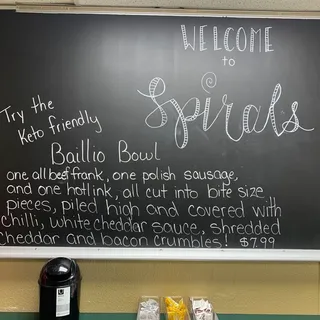 WELCOME
to
Spirals
Try the
Keto friendly
Baillio Bowl
one all beef frank, one polish sausage,
and one hotlink, all cut into bite size
pieces, piled high and covered with
chilli, white cheddar sauce, shredded
cheddar and bacon crumbles! $7.99